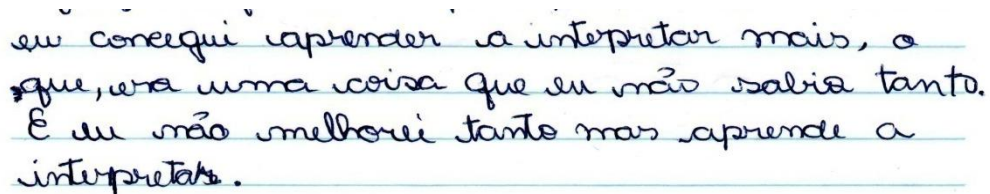 eu conseegui aprender a interpretar mais, o
que, era uma coisa que eu não sabia tanto.
E eu não melhorei tanto mas aprende a
interpretar.